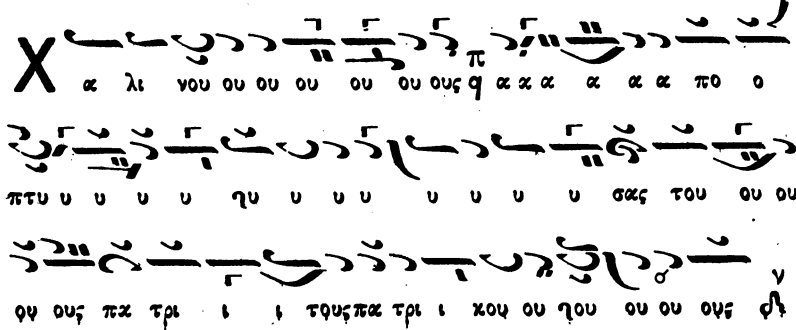 Χ α λι νου ου ου ου ου ου ους π q α κ α α α α πο ο
πτυ υ υ υ υ ηυ υ υ υ υ υ υ υ σας του ου ου
ου ους πα τρι ι ι τους πα τρι ι κου ου ηου ου ου ους ν